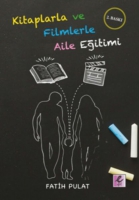 Kitaplarla ve
Filmlerle
Aile Eğitimi
2. BASKI
FATİH PULAT